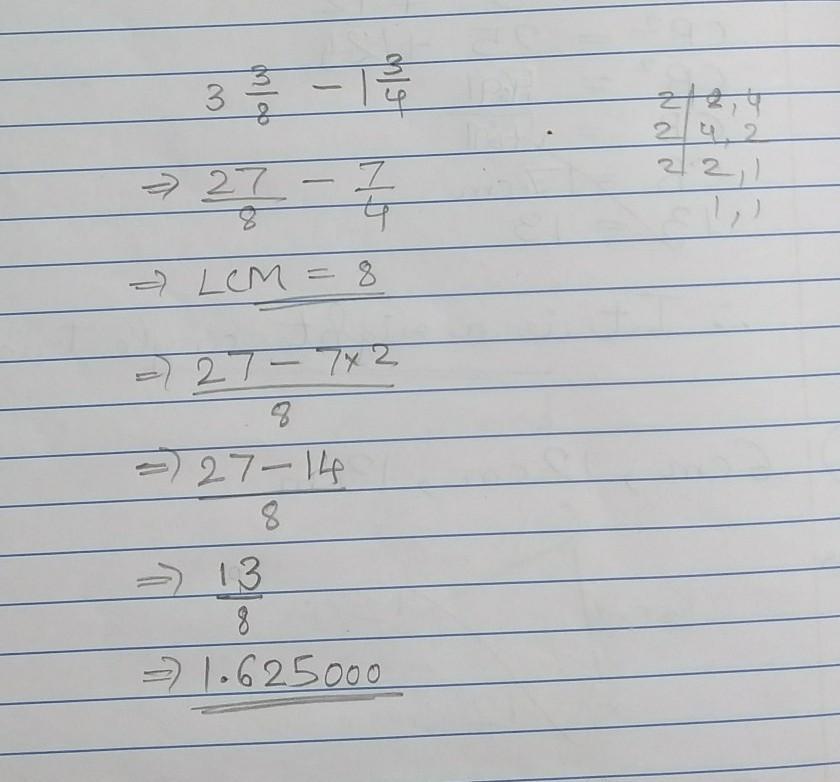 3 3/8 - 1 3/4
⇒ 27/8 - 7/4
⇒ LCM = 8
⇒ 27 - 7x2 / 8
⇒ 27 - 14 / 8
⇒ 13/8
⇒ 1.625000
2 | 8, 4
2 | 4, 2
2 | 2, 1
1, 1